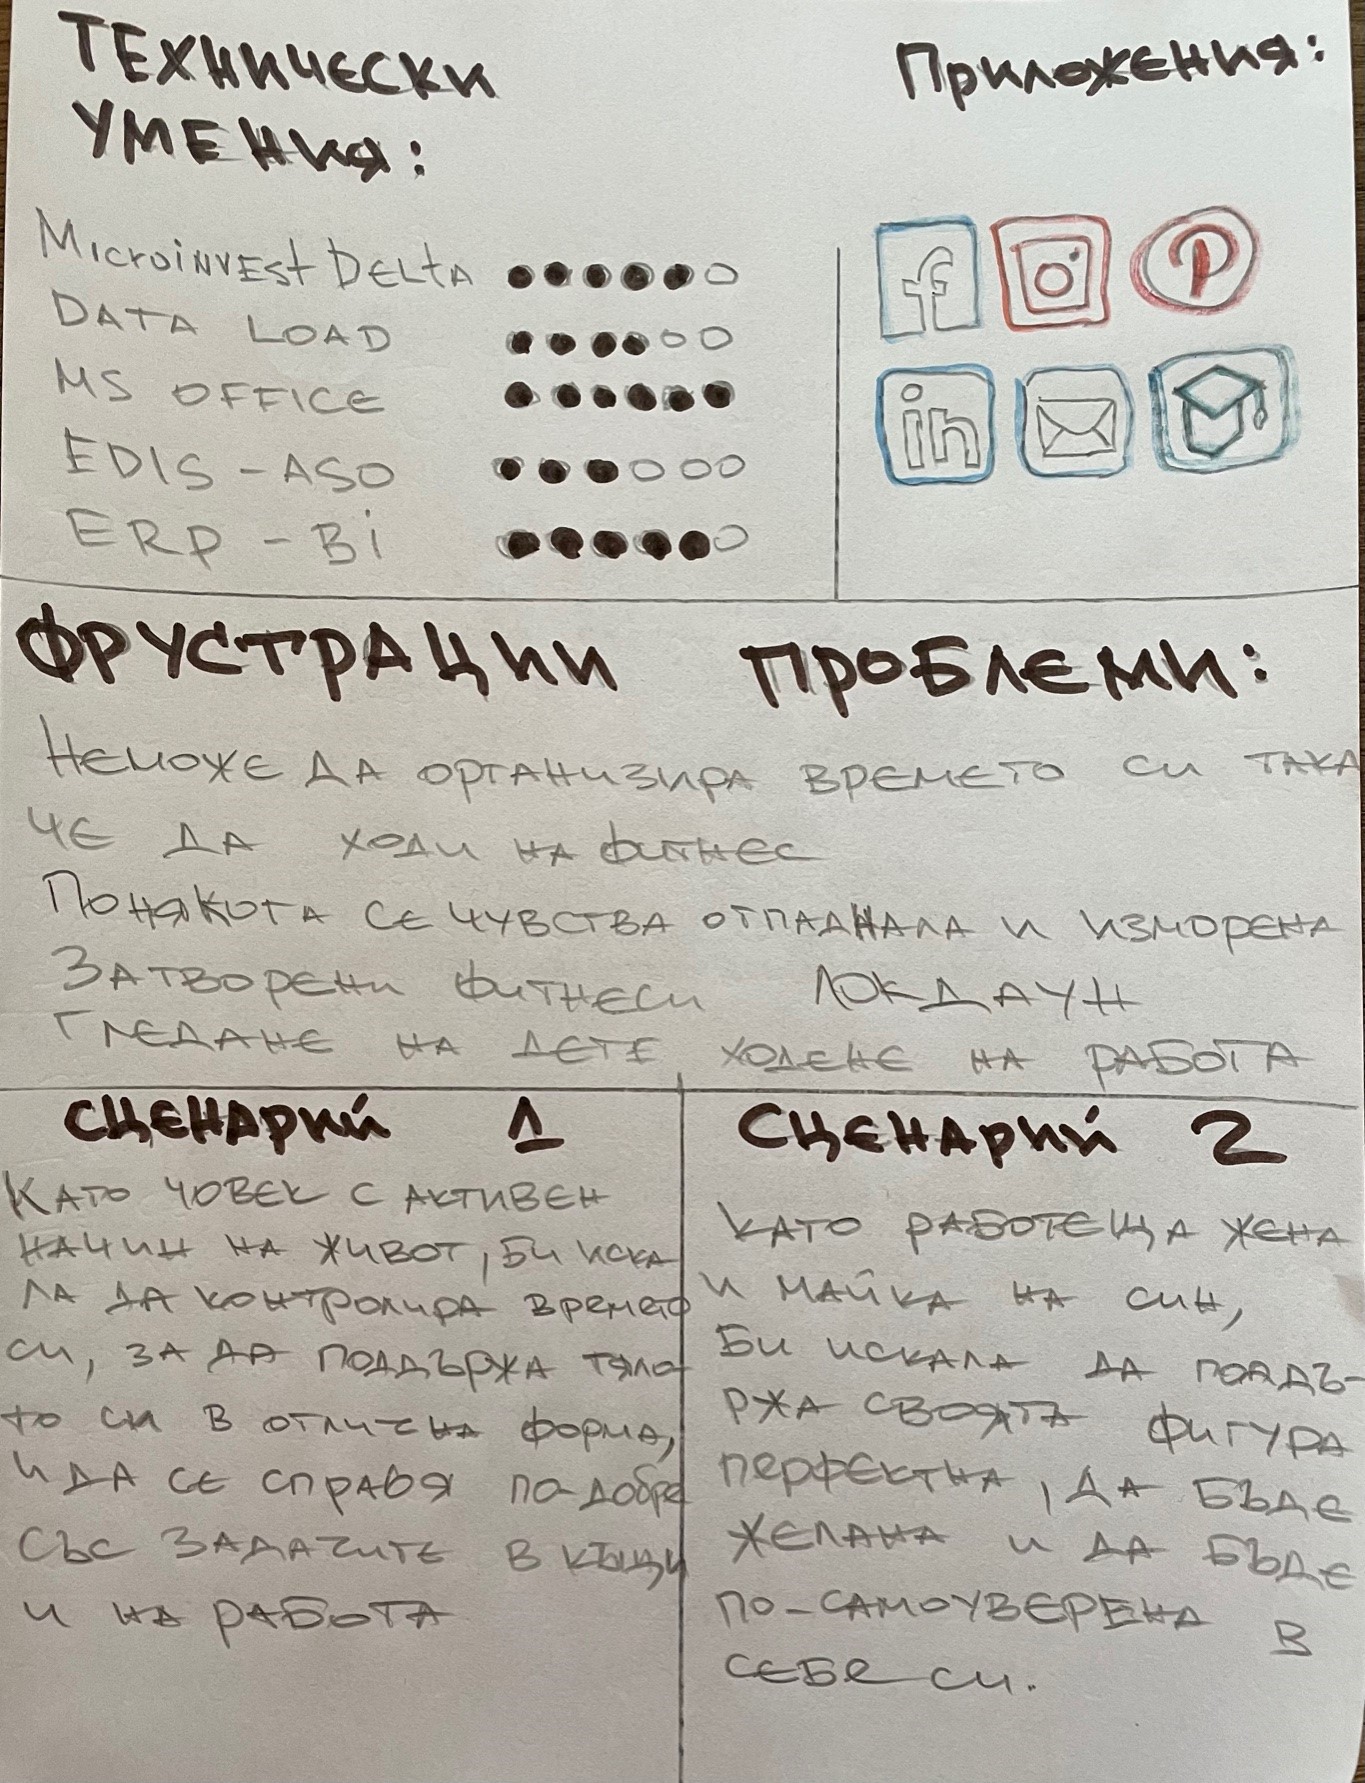 ТЕХНИЧЕСКИ
УМЕНИЯ:
Microinvest Delta
DATA LOAD
MS OFFICE
EDIS - ASO
ERP - Bi
Приложения:
f
P
in
ФРУСТРАЦИИ ПРОБЛЕМИ:
Неможе да организира времето си така
че да ходи на фитнес
Понякога се чувства отпаднала и изморена
Затворени фитнеси ЛОКДАУН
Гледане на дете ходене на работа
СЦЕНАРИЙ 1
Като човек с активен
начин на живот, би иска
ла да контролира времето
си, за да поддържа тяло
то си в отлична форма,
и да се справя по-добре
със задачите в къщи
и на работа
СЦЕНАРИЙ 2
Като работеща жена
и майка на син,
Би искала да поддъ-
ржа своята фигура
перфектна, да бъде
желана и да бъде
по-самоуверена в
себе си.